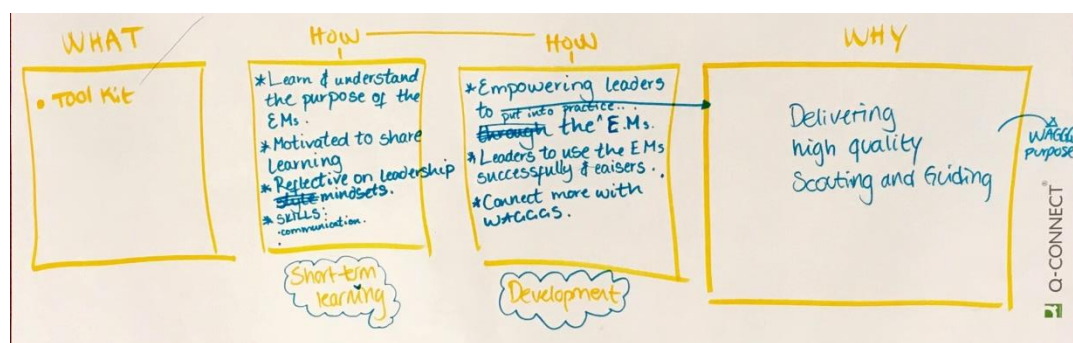 WHAT
• TOOL KIT
HOW
* Learn & understand
the purpose of the
EMs.
* Motivated to share
learning
* Reflective on leadership
style mindsets.
* SKILLS:
· communication.
·
Short-term
learning
HOW
* Empowering leaders
to put into practice...
through the ^ E.Ms.
* Leaders to use the EMs
successfully & eaisers.
* Connect more with
WAGGGS.
Development
WHY
Delivering
high quality
Scouting and Guiding
WAGGG
purpose
Q-CONNECT®